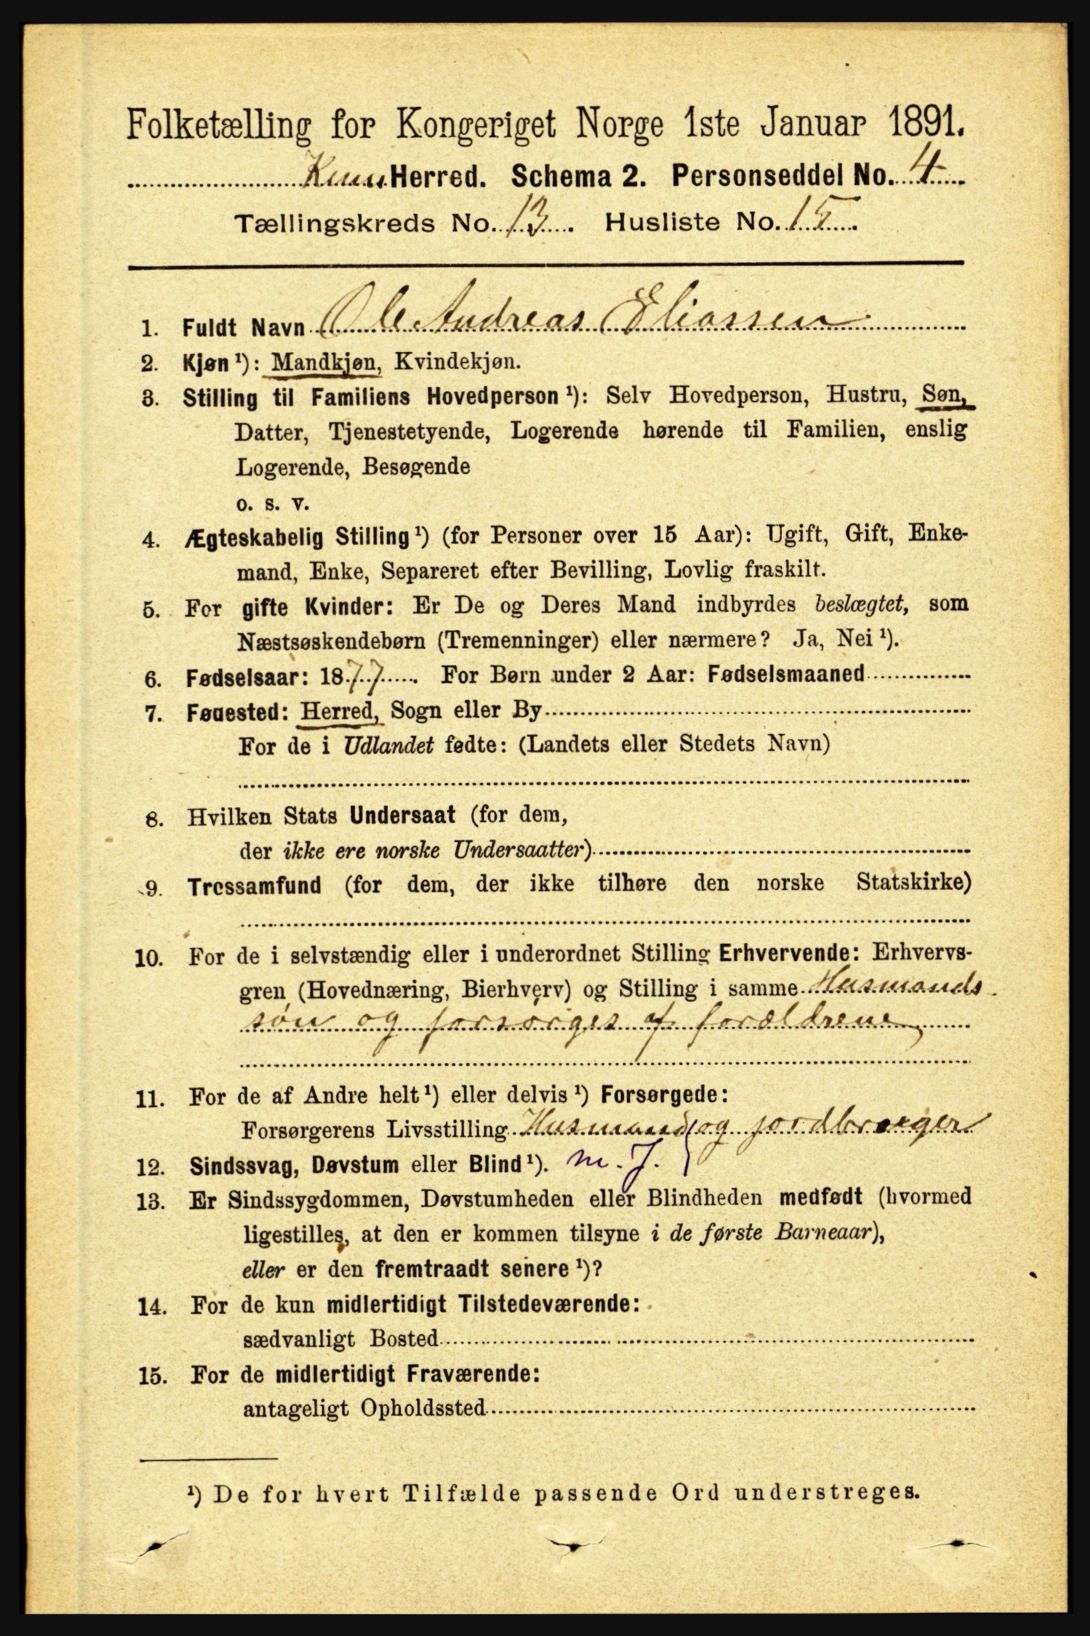 Folketælling for Kongeriget Norge 1ste Januar 1891.
Kinn Herred. Schema 2. Personseddel No. 4
Tællingskreds No. 13. Husliste No. 15.
1. Fuldt Navn Ole Andreas Eliassen
2. Kjøn ¹): Mandkjøn, Kvindekjøn.
3. Stilling til Familiens Hovedperson ¹): Selv Hovedperson, Hustru, Søn,
Datter, Tjenestetyende, Logerende hørende til Familien, enslig
Logerende, Besøgende
o. s. v.
4. Ægteskabelig Stilling ¹) (for Personer over 15 Aar): Ugift, Gift, Enke-
mand, Enke, Separeret efter Bevilling, Lovlig fraskilt.
5. For gifte Kvinder: Er De og Deres Mand indbyrdes beslægtet, som
Næstsøskendebørn (Tremenninger) eller nærmere? Ja, Nei ¹).
6. Fødselsaar: 1877. For Børn under 2 Aar: Fødselsmaaned
7. Føuested: Herred, Sogn eller By
For de i Udlandet fødte: (Landets eller Stedets Navn)
8. Hvilken Stats Undersaat (for dem,
der ikke ere norske Undersaatter)
9. Trossamfund (for dem, der ikke tilhøre den norske Statskirke)
10. For de i selvstændig eller i underordnet Stilling Erhvervende: Erhvervs-
gren (Hovednæring, Bierhverv) og Stilling i samme Husmands
søn og forsørges af forældrene
11. For de af Andre helt ¹) eller delvis ¹) Forsørgede:
Forsørgerens Livsstilling Husmand og jordbruger
12. Sindssvag, Døvstum eller Blind ¹). m. J.
13. Er Sindssygdommen, Døvstumheden eller Blindheden medfødt (hvormed
ligestilles, at den er kommen tilsyne i de første Barneaar),
eller er den fremtraadt senere ¹)?
14. For de kun midlertidigt Tilstedeværende:
sædvanligt Bosted
15. For de midlertidigt Fraværende:
antageligt Opholdssted
¹) De for hvert Tilfælde passende Ord understreges.